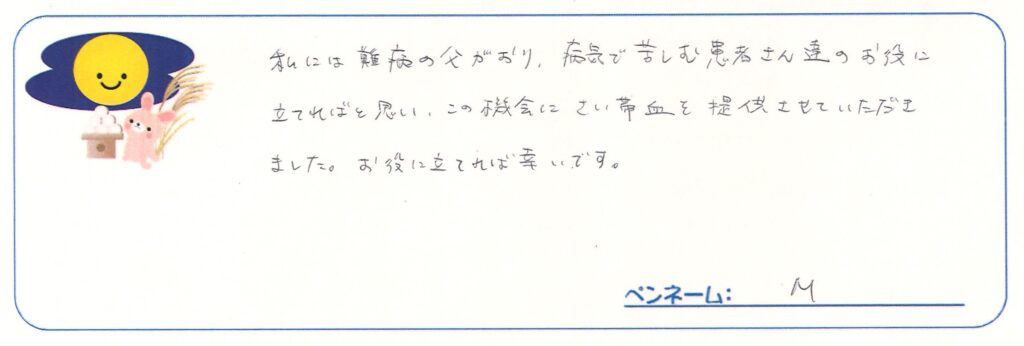 私には難病の父がおり、病気で苦しむ患者さん達のお役に
立てればと思い、この機会にさい帯血を提供させていただき
ました。お役に立てれば幸いです。
ペンネーム: M